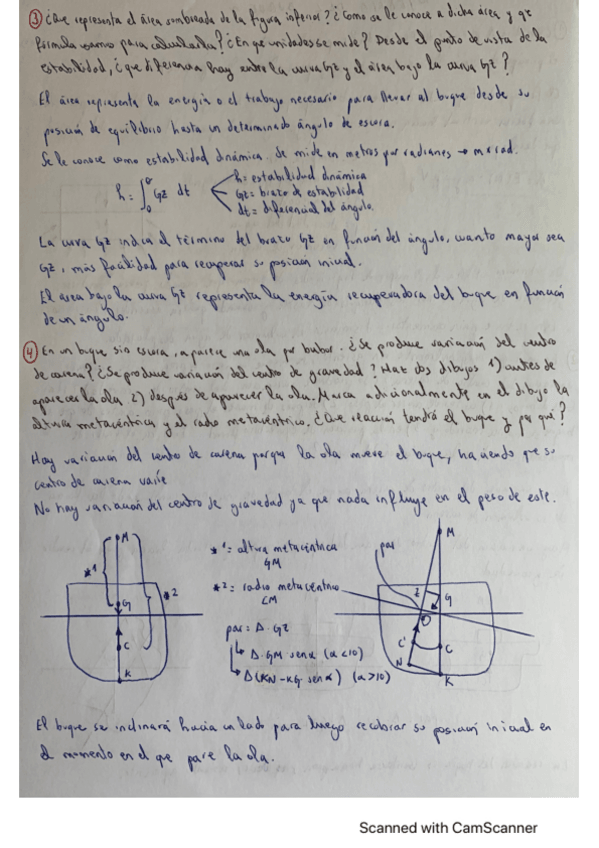 ③ ¿Que representa el área sombreada de la figura inferior? ¿Como se le conoce a dicha área y qe
fórmula usamos para calcularla? ¿En que unidades se mide? Desde el punto de vista de la
estabilidad, ¿que diferencia hay entre la curva GZ y el área bajo la curva GZ?
El área representa la energía o el trabajo necesario para llevar al buque desde su
posición de equilibrio hasta un determinado ángulo de escora.
Se le conoce como estabilidad dinámica. Se mide en metros por radianes → m x rad.
h = ∫₀^θ GZ dt
h = estabilidad dinámica
GZ = brazo de estabilidad
dt = diferencial del ángulo.
La curva GZ indica el término del brazo GZ en función del ángulo, cuanto mayor sea
GZ, más facilidad para recuperar su posición inicial.
El area bajo la curva GZ representa la energía recuperadora del buque en función
de un ángulo.
④ En un buque sin escora, aparece una ola por babor. ¿Se produce variación del centro
de carena? ¿Se produce variación del centro de gravedad? Haz dos dibujos 1) antes de
aparecer la ola 2) después de aparecer la ola. Marca adicionalmente en el dibujo la
altura metacéntrica y el radio metacéntrico, ¿Que reacción tendrá el buque y por qué?
Hay variación del centro de carena porque la ola mueve el buque, haciendo que su
centro de carena varíe
No hay variación del centro de gravedad ya que nada influye en el peso de este.
M
*1
G
*2
C
K
*1 = altura metacéntrica
GM
*2 = radio metacéntrico
CM
par = Δ · GZ
Δ · GM sen α (α<10)
Δ (KN - KG sen α) (α>10)
par
M
Z
G
C'
C
N
K
El buque se inclinará hacia un lado para luego recobrar su posición inicial en
el momento en el que pare la ola.
Scanned with CamScanner